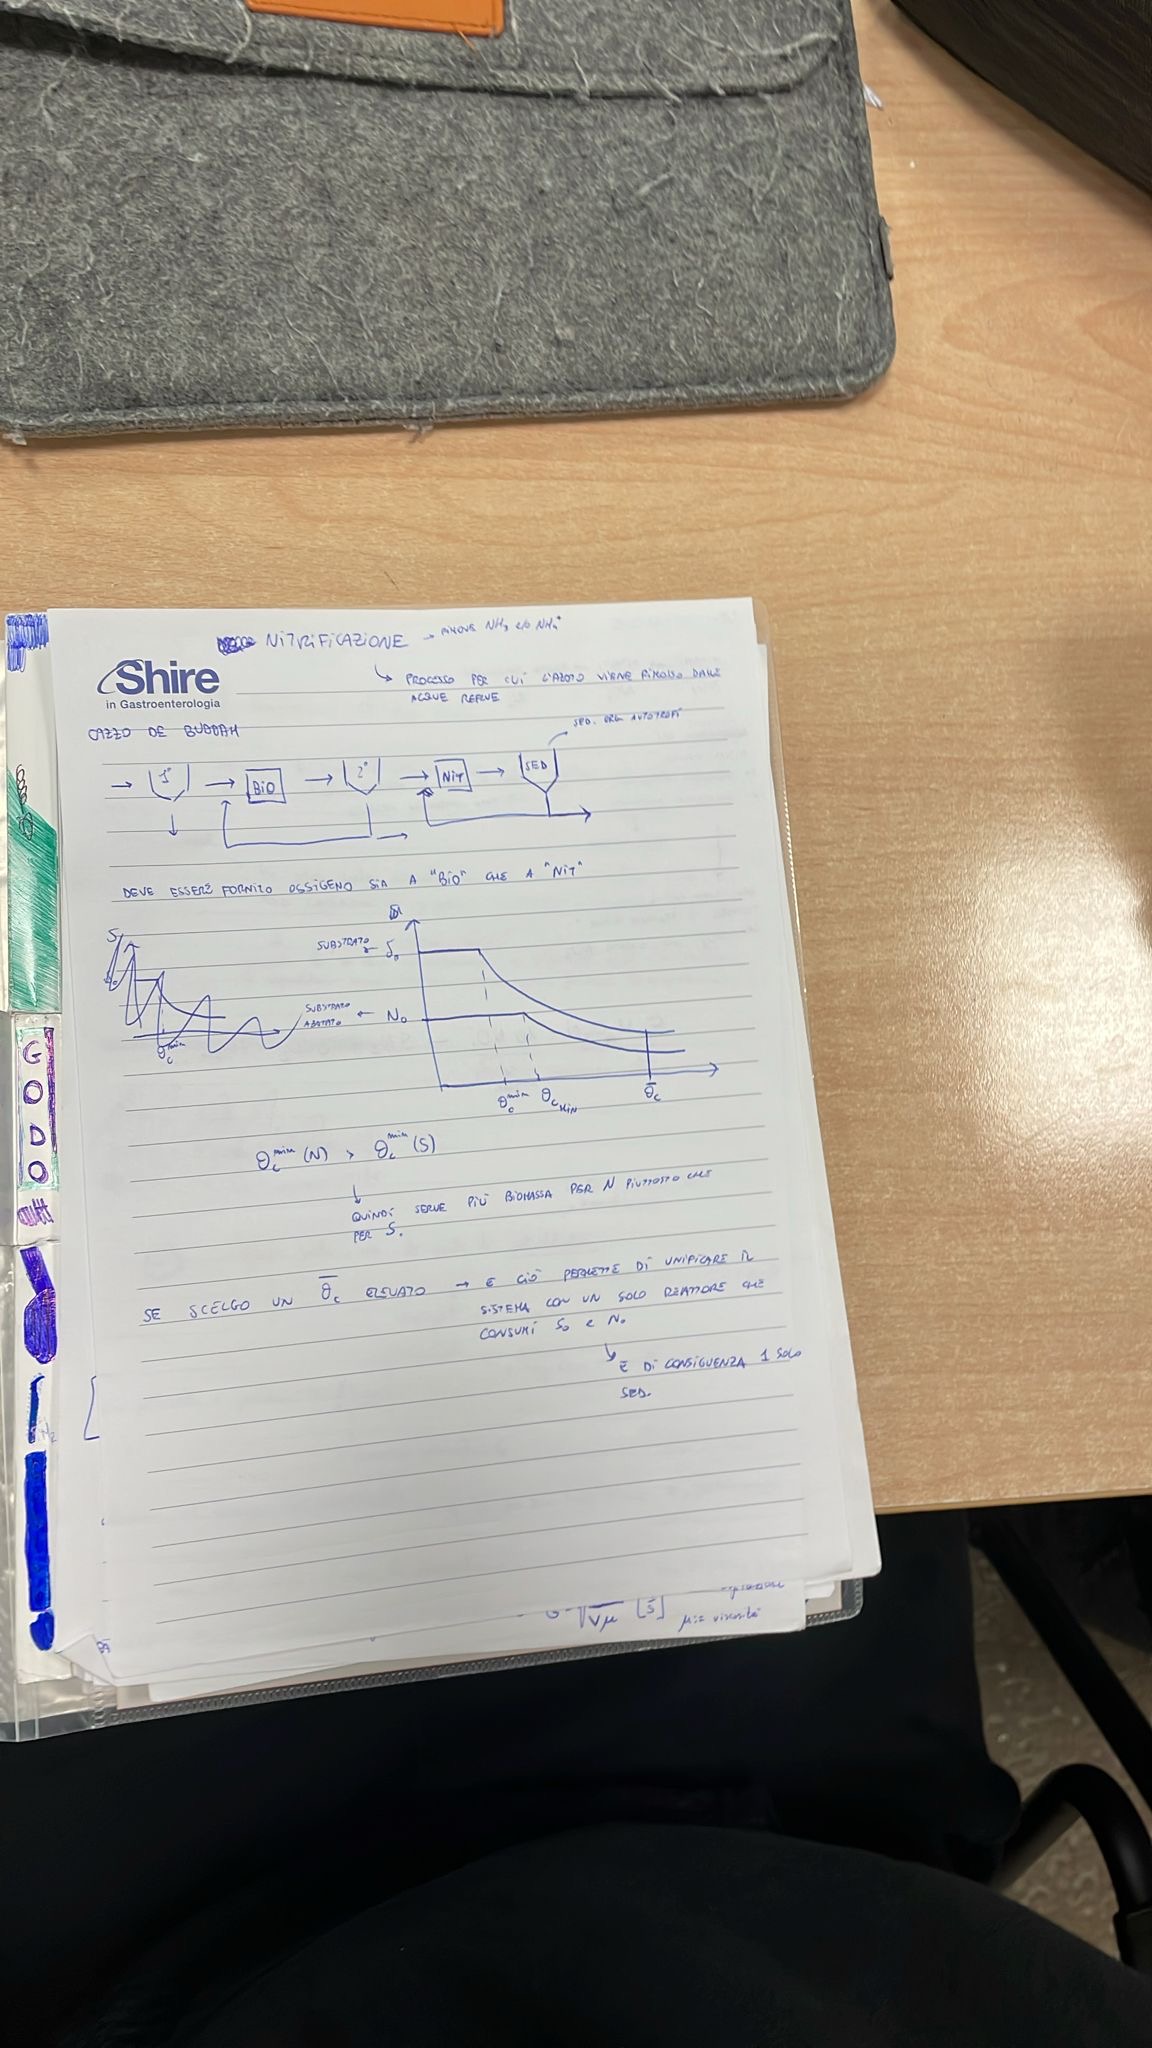 NITRIFICAZIONE → RIMOVE NH3 e/o NH4+
↳ PROCESSO PER CUI L'AZOTO VIENE RIMOSSO DALLE
ACQUE REFLUE
Shire
in Gastroenterologia
CAZZO DE BUDDAH
SED. ORG. AUTOTROFI
→ 1° → BIO → 2° → NIT → SED
DEVE ESSERE FORNITO OSSIGENO SIA A "BIO" CHE A "NIT"
S
SUBSTRATO ← S₀
SUBSTRATO
AZOTATO ← N₀
θc min
θc min θc MIN θ̄c
θc min (N) > θc min (S)
↓
QUINDI SERVE PIÙ BIOMASSA PER N PIUTTOSTO CHE
PER S.
SE SCELGO UN θ̄c ELEVATO → E CIÒ PERMETTE DI UNIFICARE IL
SISTEMA CON UN SOLO REATTORE CHE
CONSUMI S₀ e N₀
↳ E DI CONSIGUENZA 1 SOLO
SED.
G
O
D
O
μ:= viscosità